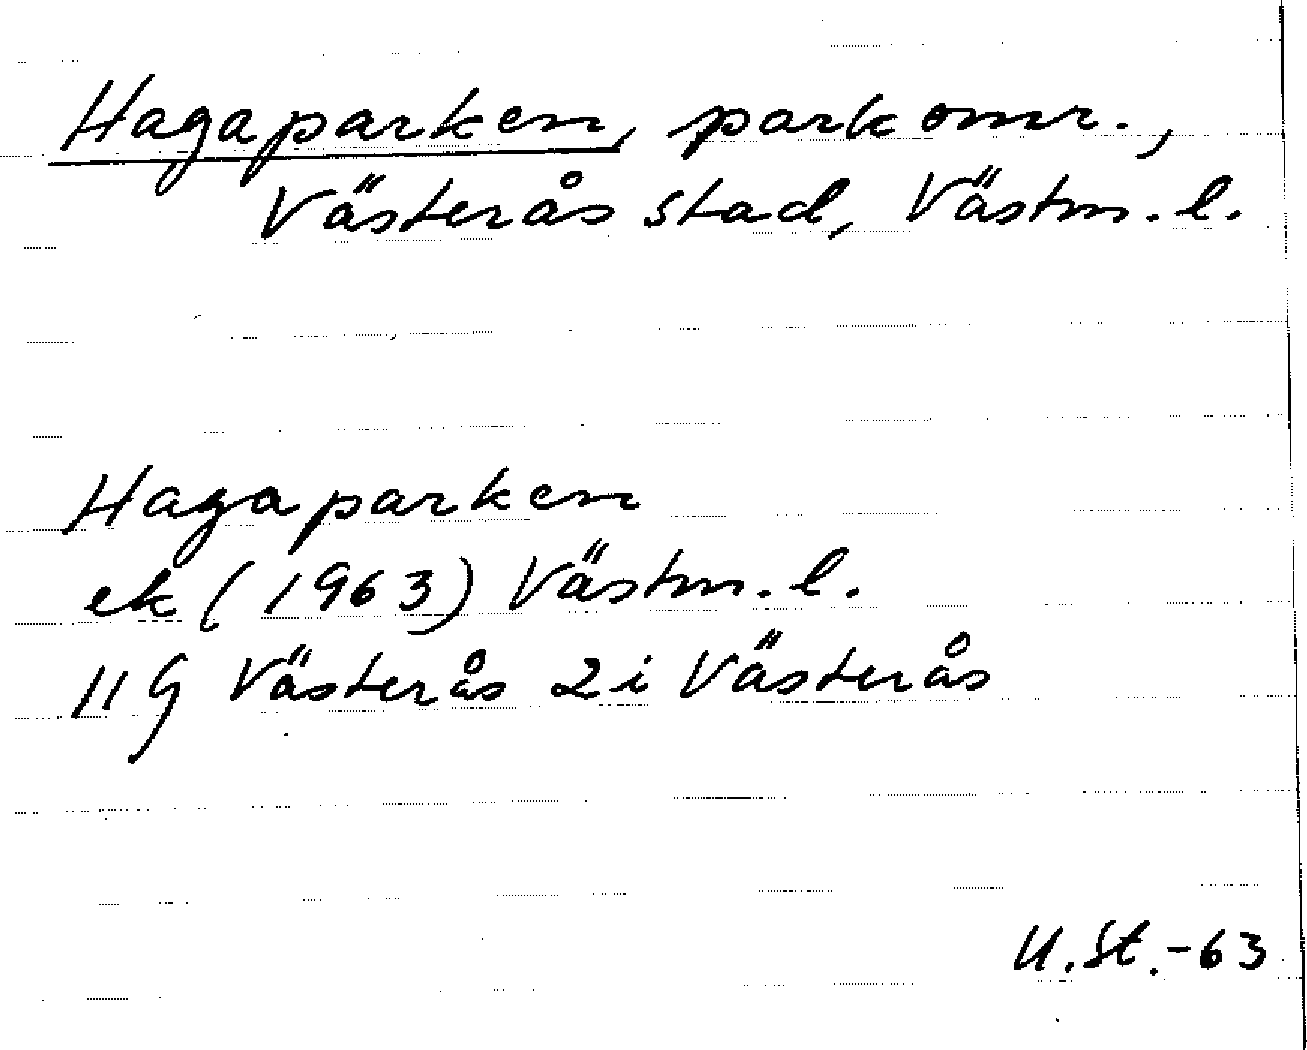 Hagaparken, parkomr.,
Västerås stad, Västm. l.
Hagaparken
ek (1963) Västm. l.
11G Västerås 2i Västerås
U.St.-63